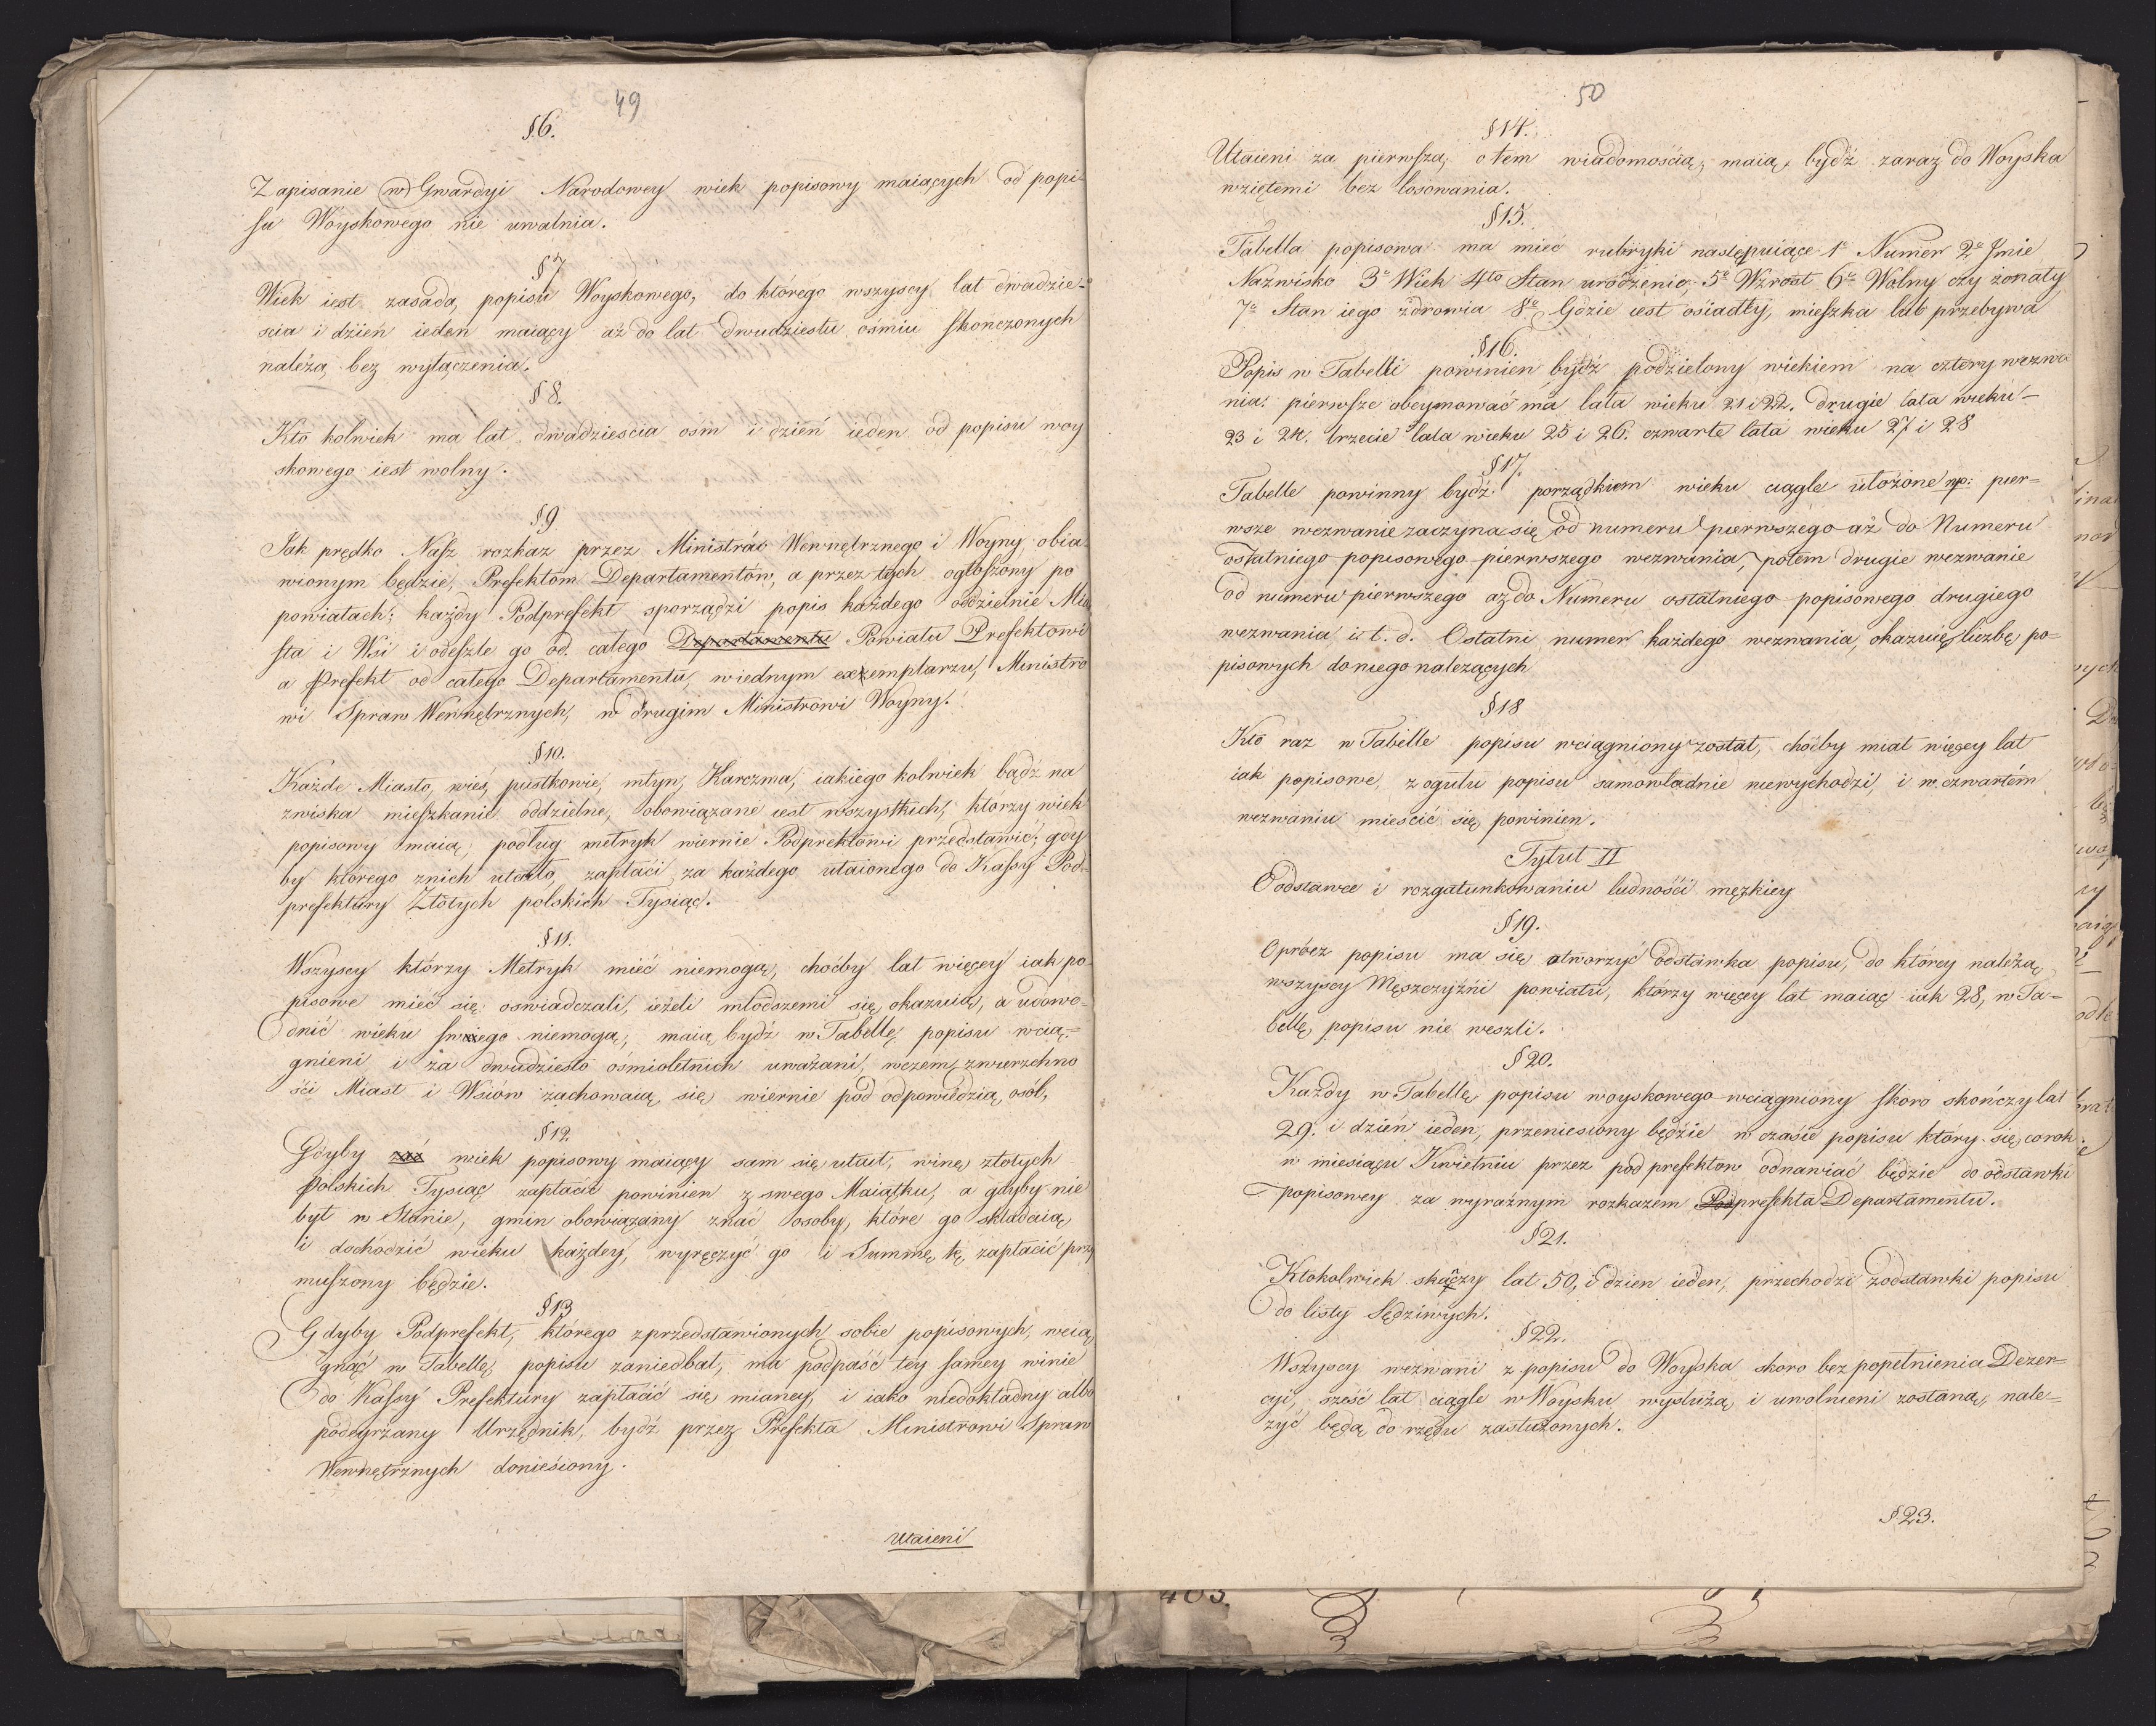 49
§6.
Zapisanie w Gwardyi Narodowey wiek popisowy maiących od popi-
su Woyskowego nie uwalnia.
§7
Wiek iest zasadą popisu Woyskowego, do którego wszyscy lat dwadzie-
scia i dzień ieden maiący aż do lat dwudziestu ośmiu skończonych
należą bez wyłączenia.
§8.
Kto kolwiek ma lat dwadzieścia ośm i dzień ieden od popisu woy
skowego iest wolny.
§9
Jak prędko Nasz rozkaz przez Ministrów Wewnętrznego i Woyny, obia
wionym będzie, Prefektom Departamentów, a przez tych ogłoszony po
powiatach; każdy Podprefekt sporządzi popis każdego oddzielnie Mia
sta i Wsi i odeszle go od całego Departamentu Powiatu Prefektowi
a Prefekt od całego Departamentu, w iednym exemplarzu, Ministro
wi Spraw Wewnętrznych, w drugim Ministrowi Woyny.
§10.
Każde Miasto, wieś, pustkowie, młyn, Karczma, iakiego kolwiek bądź na
zwiska mieszkanie oddzielne, obowiązane iest wszystkich, którzy wiek
popisowy maią, podług metryk wiernie Podprektowi przedstawić; gdy
by którego z nich utaiło, zapłaci za każdego utaionego do Kassy Pod-
prefektury Złotych polskich Tysiąc.
§11.
Wszyscy którzy Metryk mieć niemogą, choćby lat więcey iak po-
pisowe mieć się oswiadczali, ieżeli młodszemi się okazuią, a udowo-
dnić wieku swoiego niemogą; maią bydź w Tabellę popisu wcią-
gnieni i za dwudziesto ośmioletnich uważani, wczem zwierzchno
ści Miast i Wsiów zachowaią się wiernie pod odpowiedzią osób,
§12.
Gdyby wiek popisowy maiący sam się utaił, winę złotych
Polskich Tysiąc zapłacić powinien z swego Maiątku, a gdyby nie
był w Stanie, gmin obowiązany znać osoby, które go składaią
i dochodzić wieku każdey, wyręczyć go i Summę tę zapłacić przy
muszony będzie.
§13
Gdyby Podprefekt, którego zprzedstawionych sobie popisowych, wcią
gnąć w Tabellę popisu zaniedbał, ma podpaść tey samey winie
do Kassy Prefektury zapłacić się mianey, i iako niedokładny albo
podeyrzany Urzędnik, bydź przez Prefekta Ministrowi Spraw
Wewnętrznych doniesiony.
Utaieni
50
§14.
Utaieni za pierwszą o tem wiadomością, maią bydź zaraz do Woyska
wziętemi bez losowania.
§15.
Tabella popisowa ma mieć rubryki następuiące 1o Numer 2o Jmie
Nazwisko 3o Wiek 4to Stan urodzenie, 5o Wzrost 6o Wolny czy żonaty
7o Stan iego zdrowia 8o Gdzie iest osiadły, mieszka lub przebywa
§16.
Popis w Tabelli powinien bydź podzielony wiekiem na cztery wezwa
nia: pierwsze obeymować ma lata wieku 21 i 22. drugie lata wieku -
23 i 24. trzecie lata wieku 25 i 26. czwarte lata wieku 27 i 28
§17.
Tabelle powinny bydź porządkiem wieku ciągle ułożone np: pier=
wsze wezwanie zaczyna się od numeru pierwszego aż do Numeru
ostatniego popisowego pierwszego wezwania, potem drugie wezwanie
od numeru pierwszego aż do Numeru ostatniego popisowego drugiego
wezwania i t. d. Ostatni numer każdego wezwania, okazuię liczbę po=
pisowych do niego nalezących
§18
Kto raz w Tabelle popisu wciągniony został, choćby miał więcey lat
iak popisowe, z ogułu popisu samowładnie niewychodzi, i w czwartém
wezwaniu mieścić się powinien.
Tytuł II
O odstawce i rozgatunkowaniu ludności męzkiey
§19.
Oprócz popisu ma się otworzyć odstawka popisu, do którey należą
wszyscy Męszczyźni powiatu, którzy więcey lat maiąc iak 28, w Ta=
bellę popisu nie weszli.
§20.
Każdy w Tabellę popisu woyskowego wciągniony skoro skończy lat
29. i dzień ieden, przeniesiony będzie w czasie popisu który się corok
w miesiącu Kwietniu przez podprefektow odnawiać będzie do odstawki
popisowey za wyraźnym rozkazem Podprefekta Departamentu.
§21.
Ktokolwiek skączy lat 50, i dzien ieden, przechodzi z odstawki popisu
do listy Sędziwych.
§22.
Wszyscy wezwani z popisu do Woyska skoro bez popełnienia Dezer=
cyi, sześć lat ciągle w Woysku wysłużą i uwolnieni zostaną, nale=
żyć będą do rzędu zasłużonych.
§23.